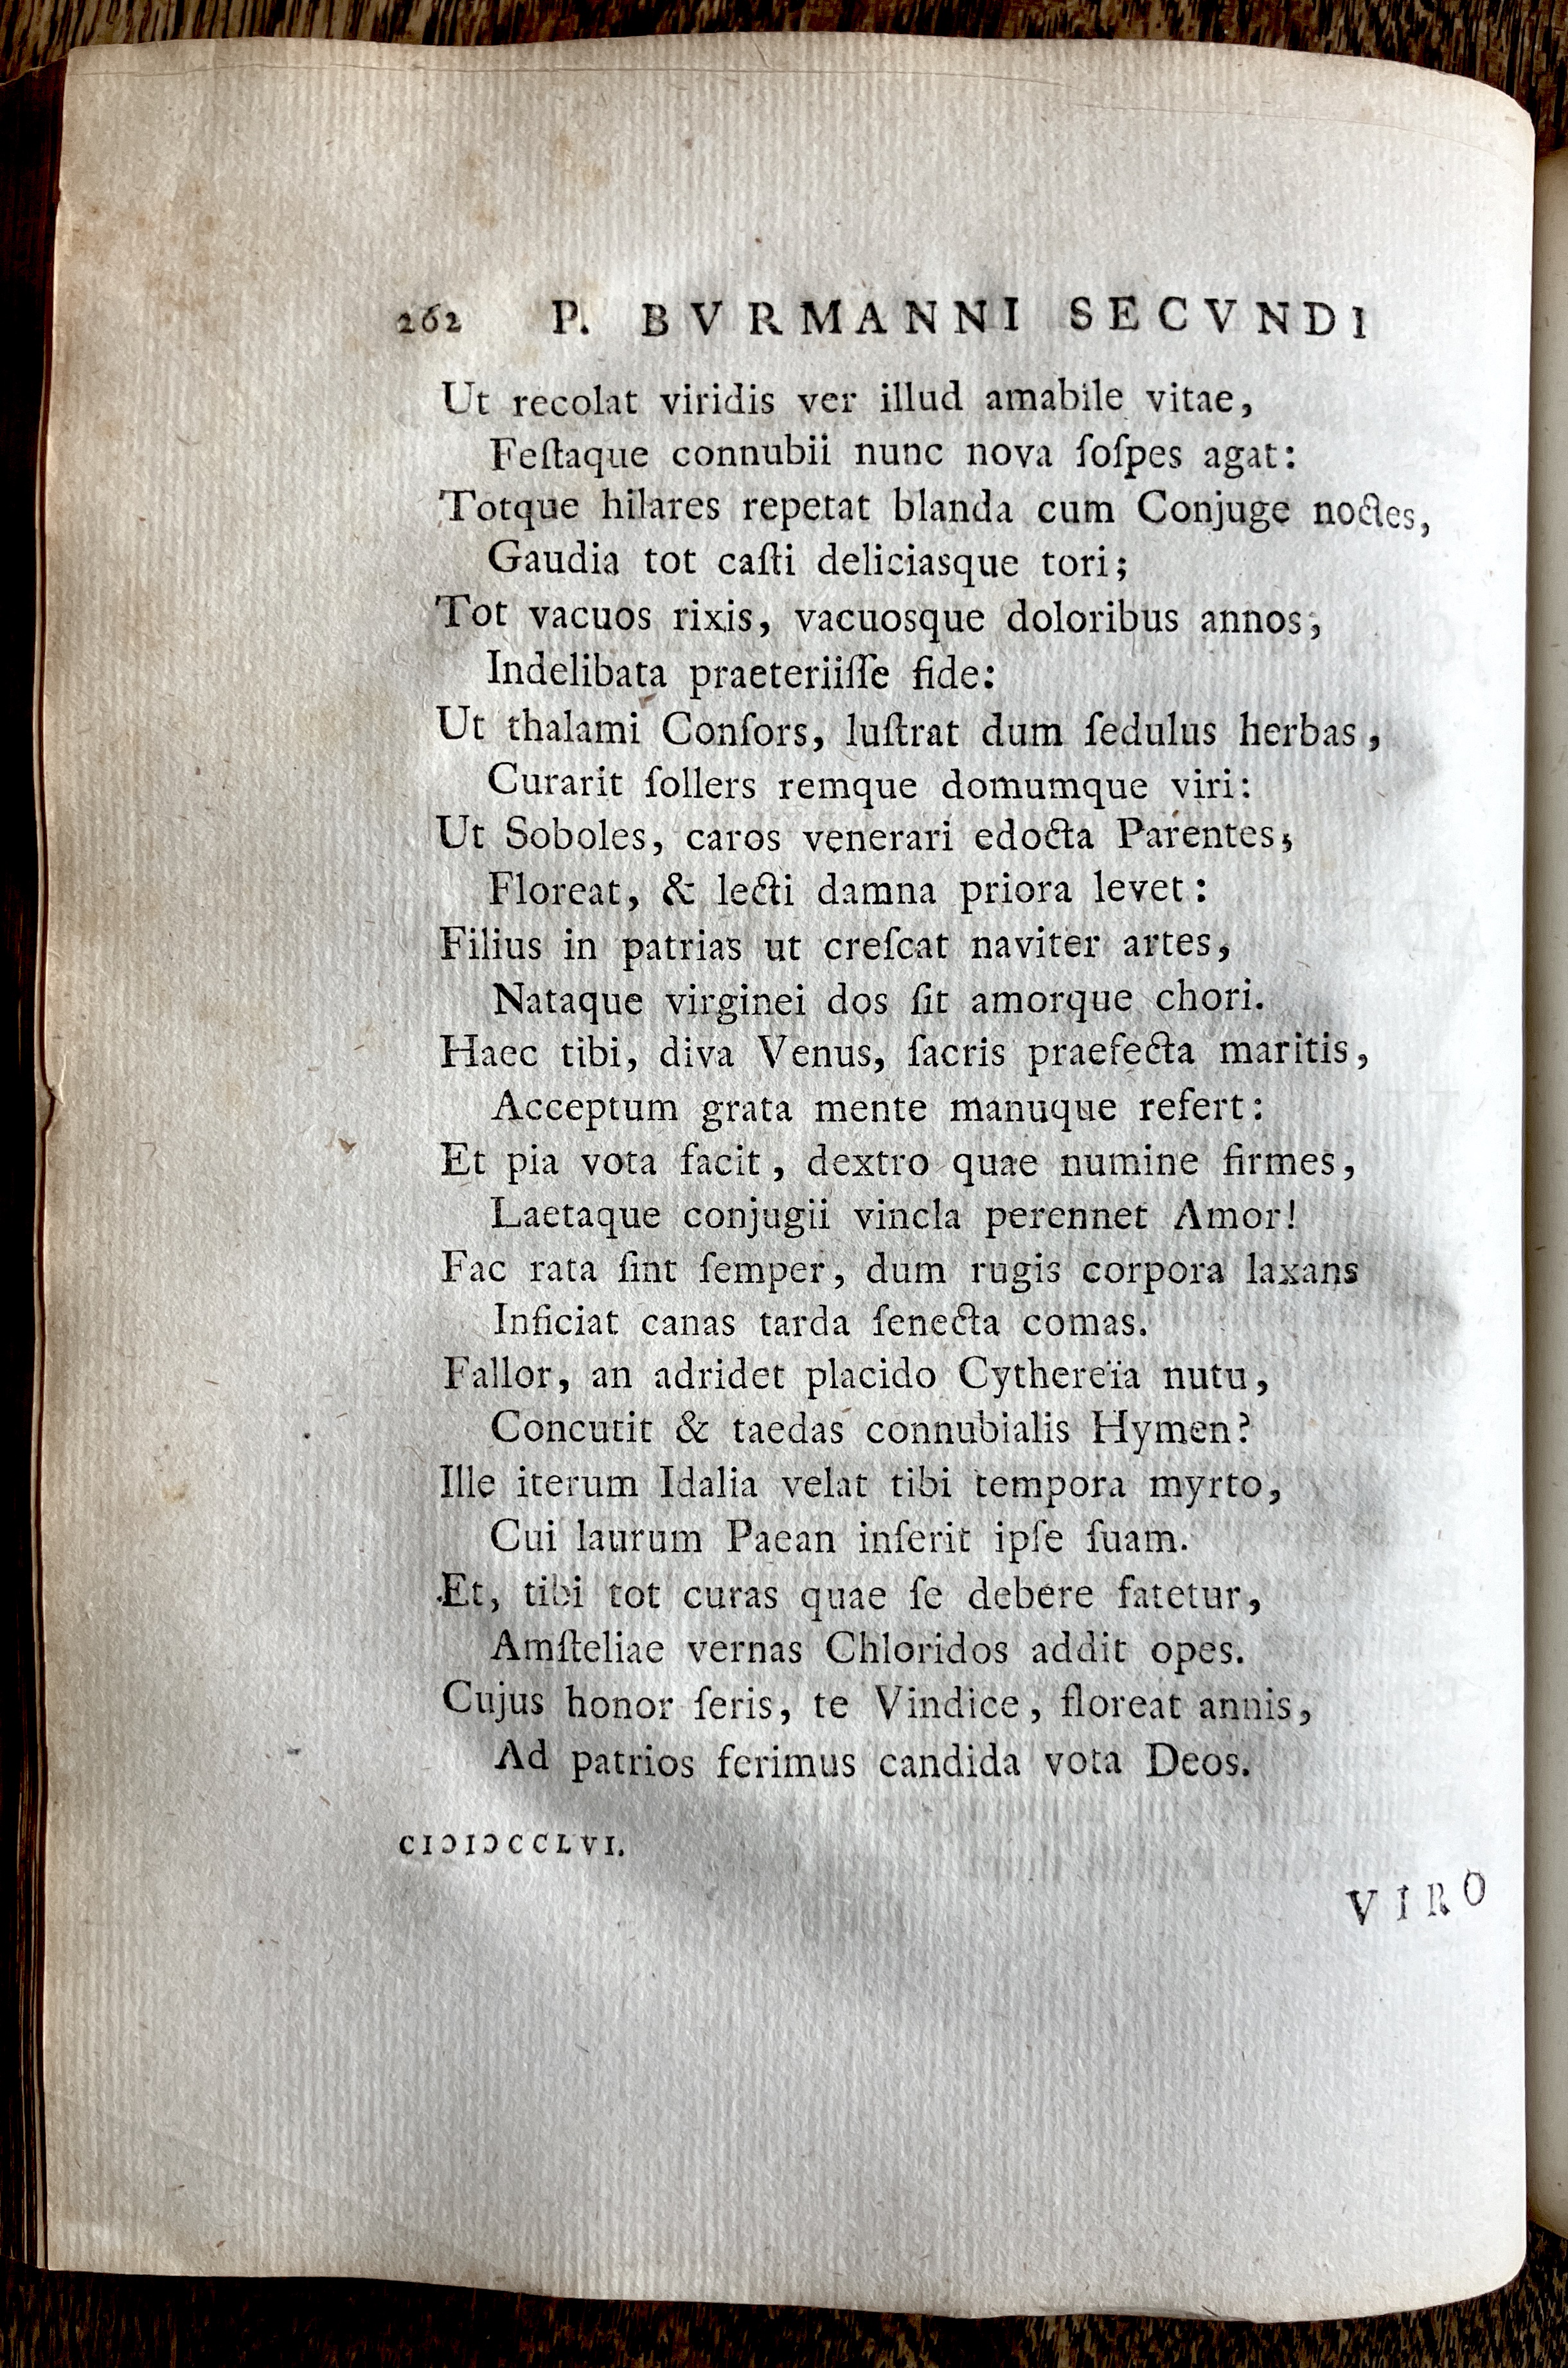 262 P. BVRMANNI SECVNDI
Ut recolat viridis ver illud amabile vitae,
Feſtaque connubii nunc nova ſoſpes agat:
Totque hilares repetat blanda cum Conjuge noctes,
Gaudia tot caſti deliciasque tori;
Tot vacuos rixis, vacuosque doloribus annos,
Indelibata praeteriiſſe fide:
Ut thalami Conſors, luſtrat dum ſedulus herbas,
Curarit ſollers remque domumque viri:
Ut Soboles, caros venerari edocta Parentes,
Floreat, & lecti damna priora levet:
Filius in patrias ut creſcat naviter artes,
Nataque virginei dos ſit amorque chori.
Haec tibi, diva Venus, ſacris praefecta maritis,
Acceptum grata mente manuque refert:
Et pia vota facit, dextro quae numine firmes,
Laetaque conjugii vincla perennet Amor!
Fac rata ſint ſemper, dum rugis corpora laxans
Inficiat canas tarda ſenecta comas.
Fallor, an adridet placido Cythereïa nutu,
Concutit & taedas connubialis Hymen?
Ille iterum Idalia velat tibi tempora myrto,
Cui laurum Paean inſerit ipſe ſuam.
Et, tibi tot curas quae ſe debere fatetur,
Amſteliae vernas Chloridos addit opes.
Cujus honor ſeris, te Vindice, floreat annis,
Ad patrios ferimus candida vota Deos.
CIↃIↃCCLVI.
VIRO